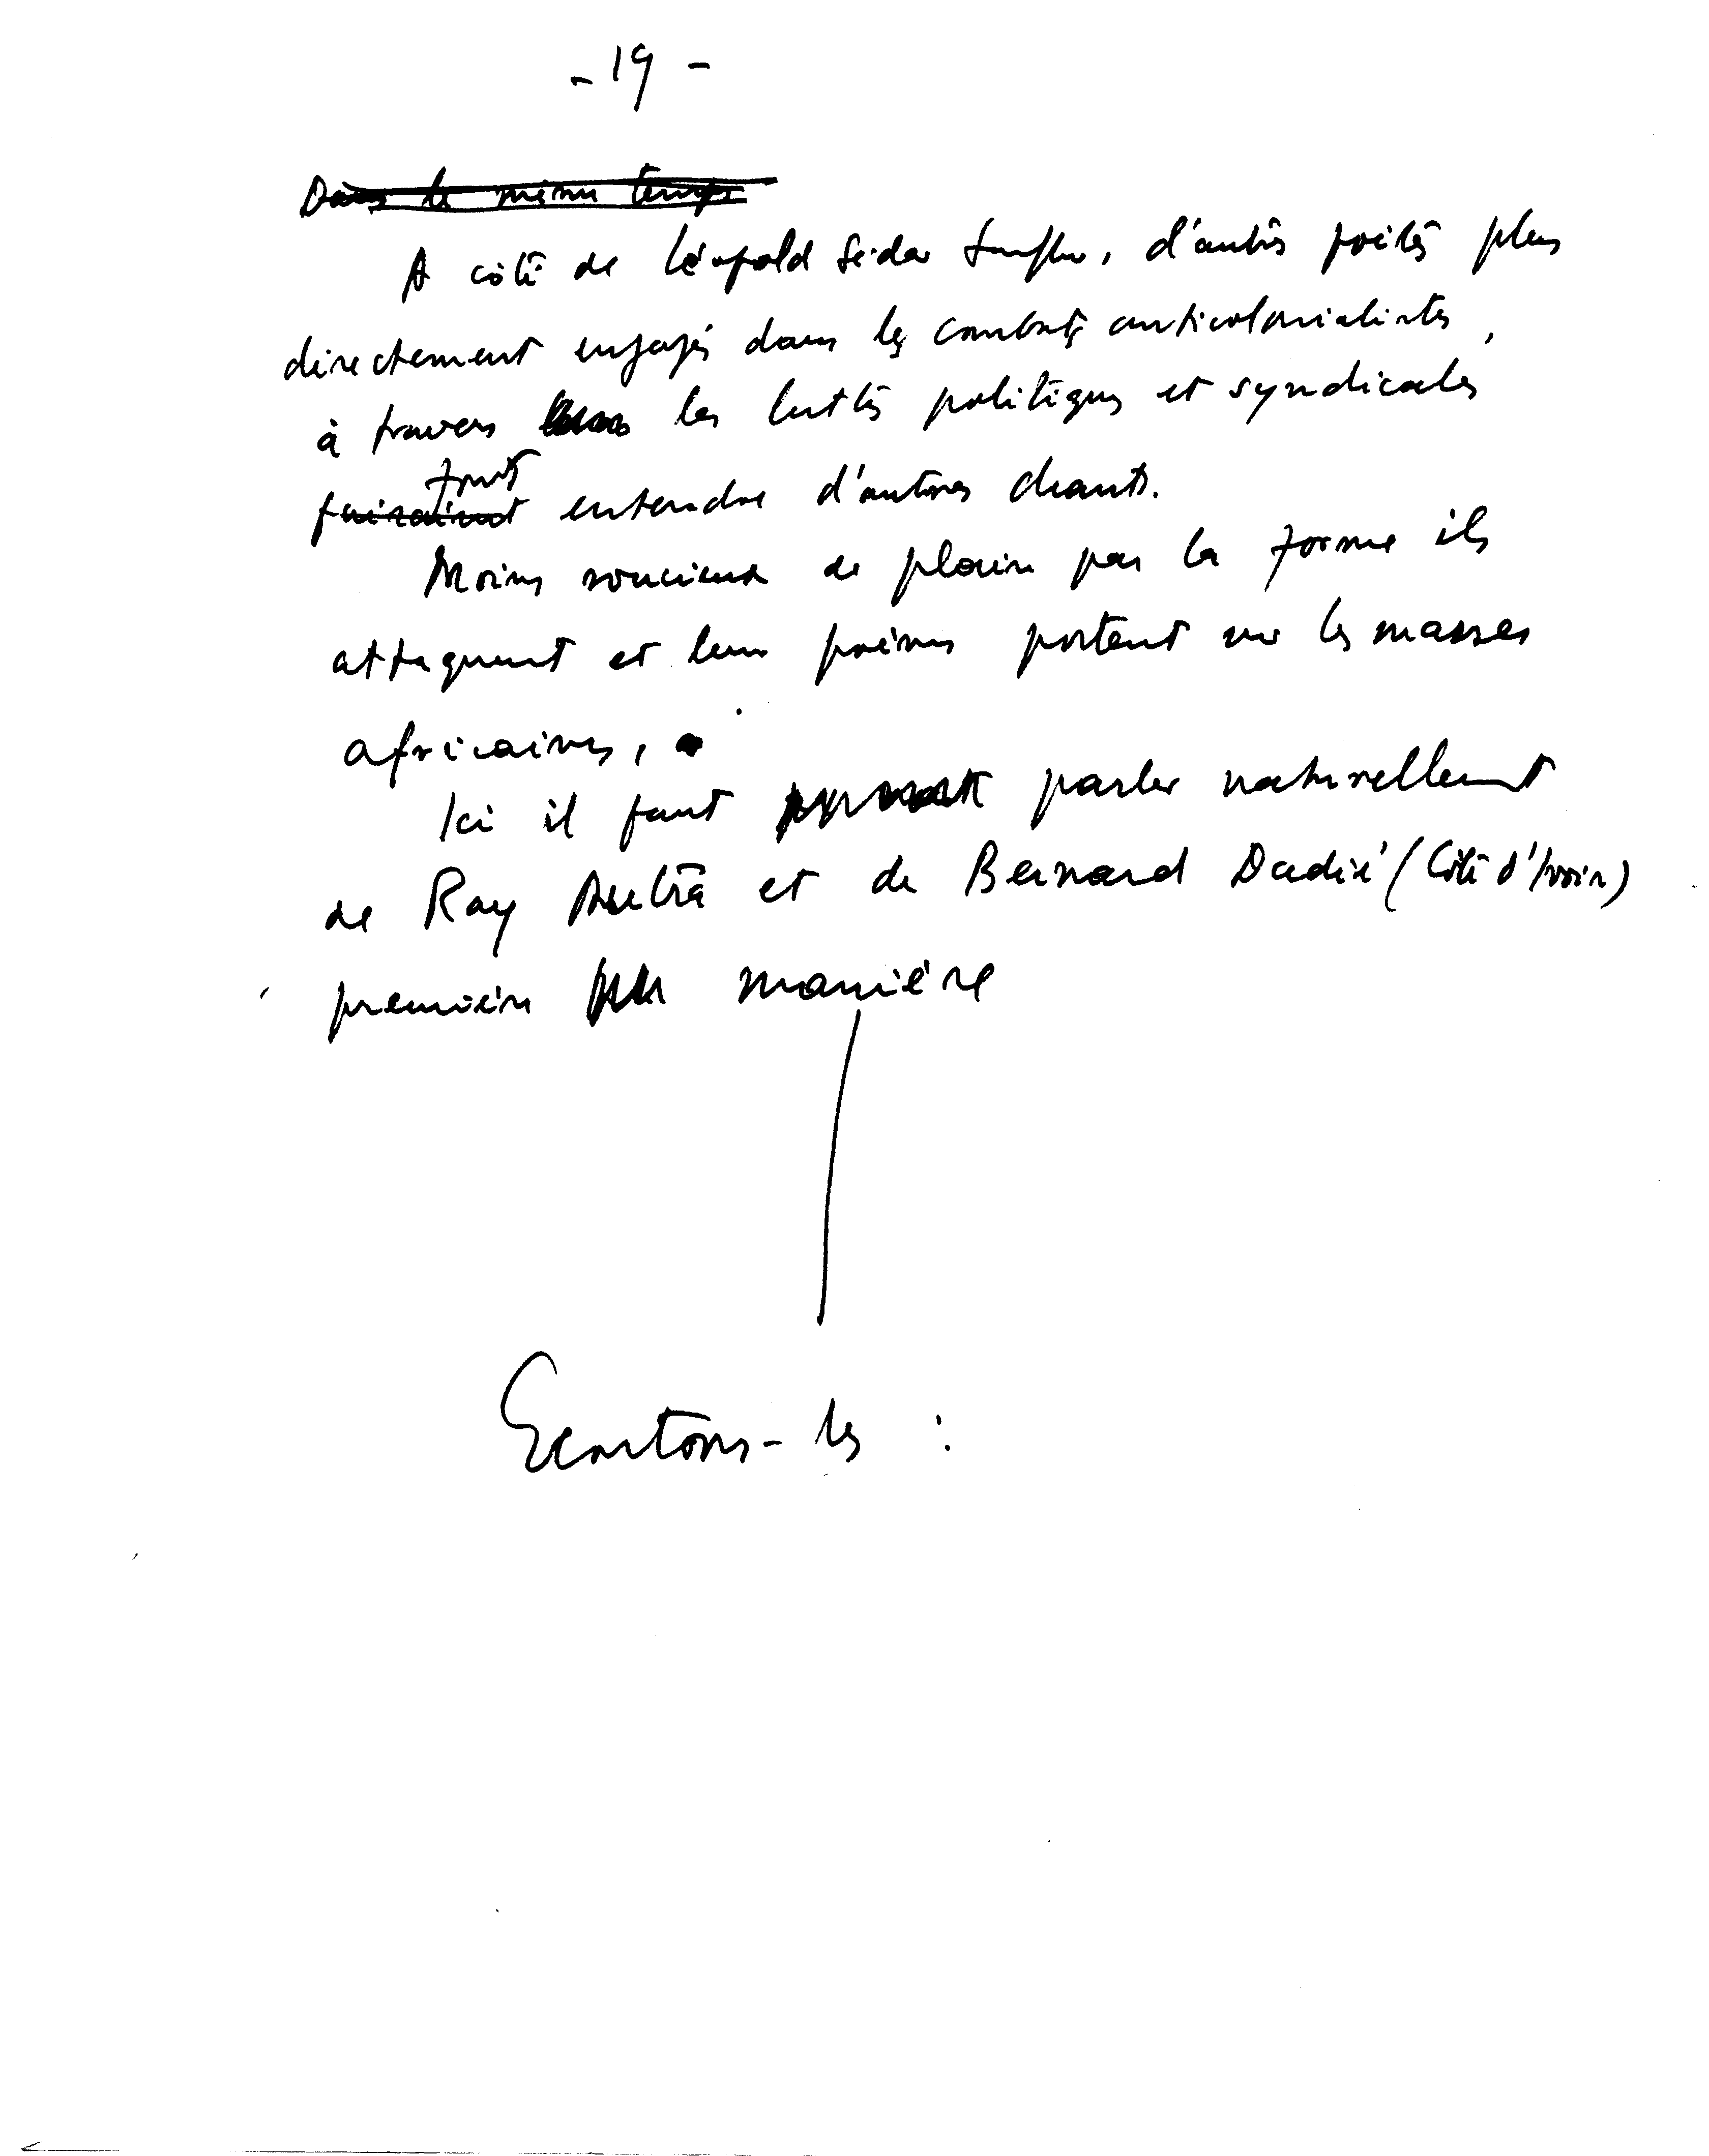 - 19 -
Dans le même temps
A côté de Léopold Sédar Senghor, d'autres poètes plus
directement engagés dans les combats anticolonialistes,
à travers les luttes politiques et syndicales
font
faisaient entendre d'autres chants.
Moins soucieux de plaire par la forme ils
attaquent et leurs poèmes portent sur les masses
africaines,
Ici il faut parler naturellement
de Ray Autra et de Bernard Dadié (Côte d'Ivoire)
première manière
Ecoutons-les :